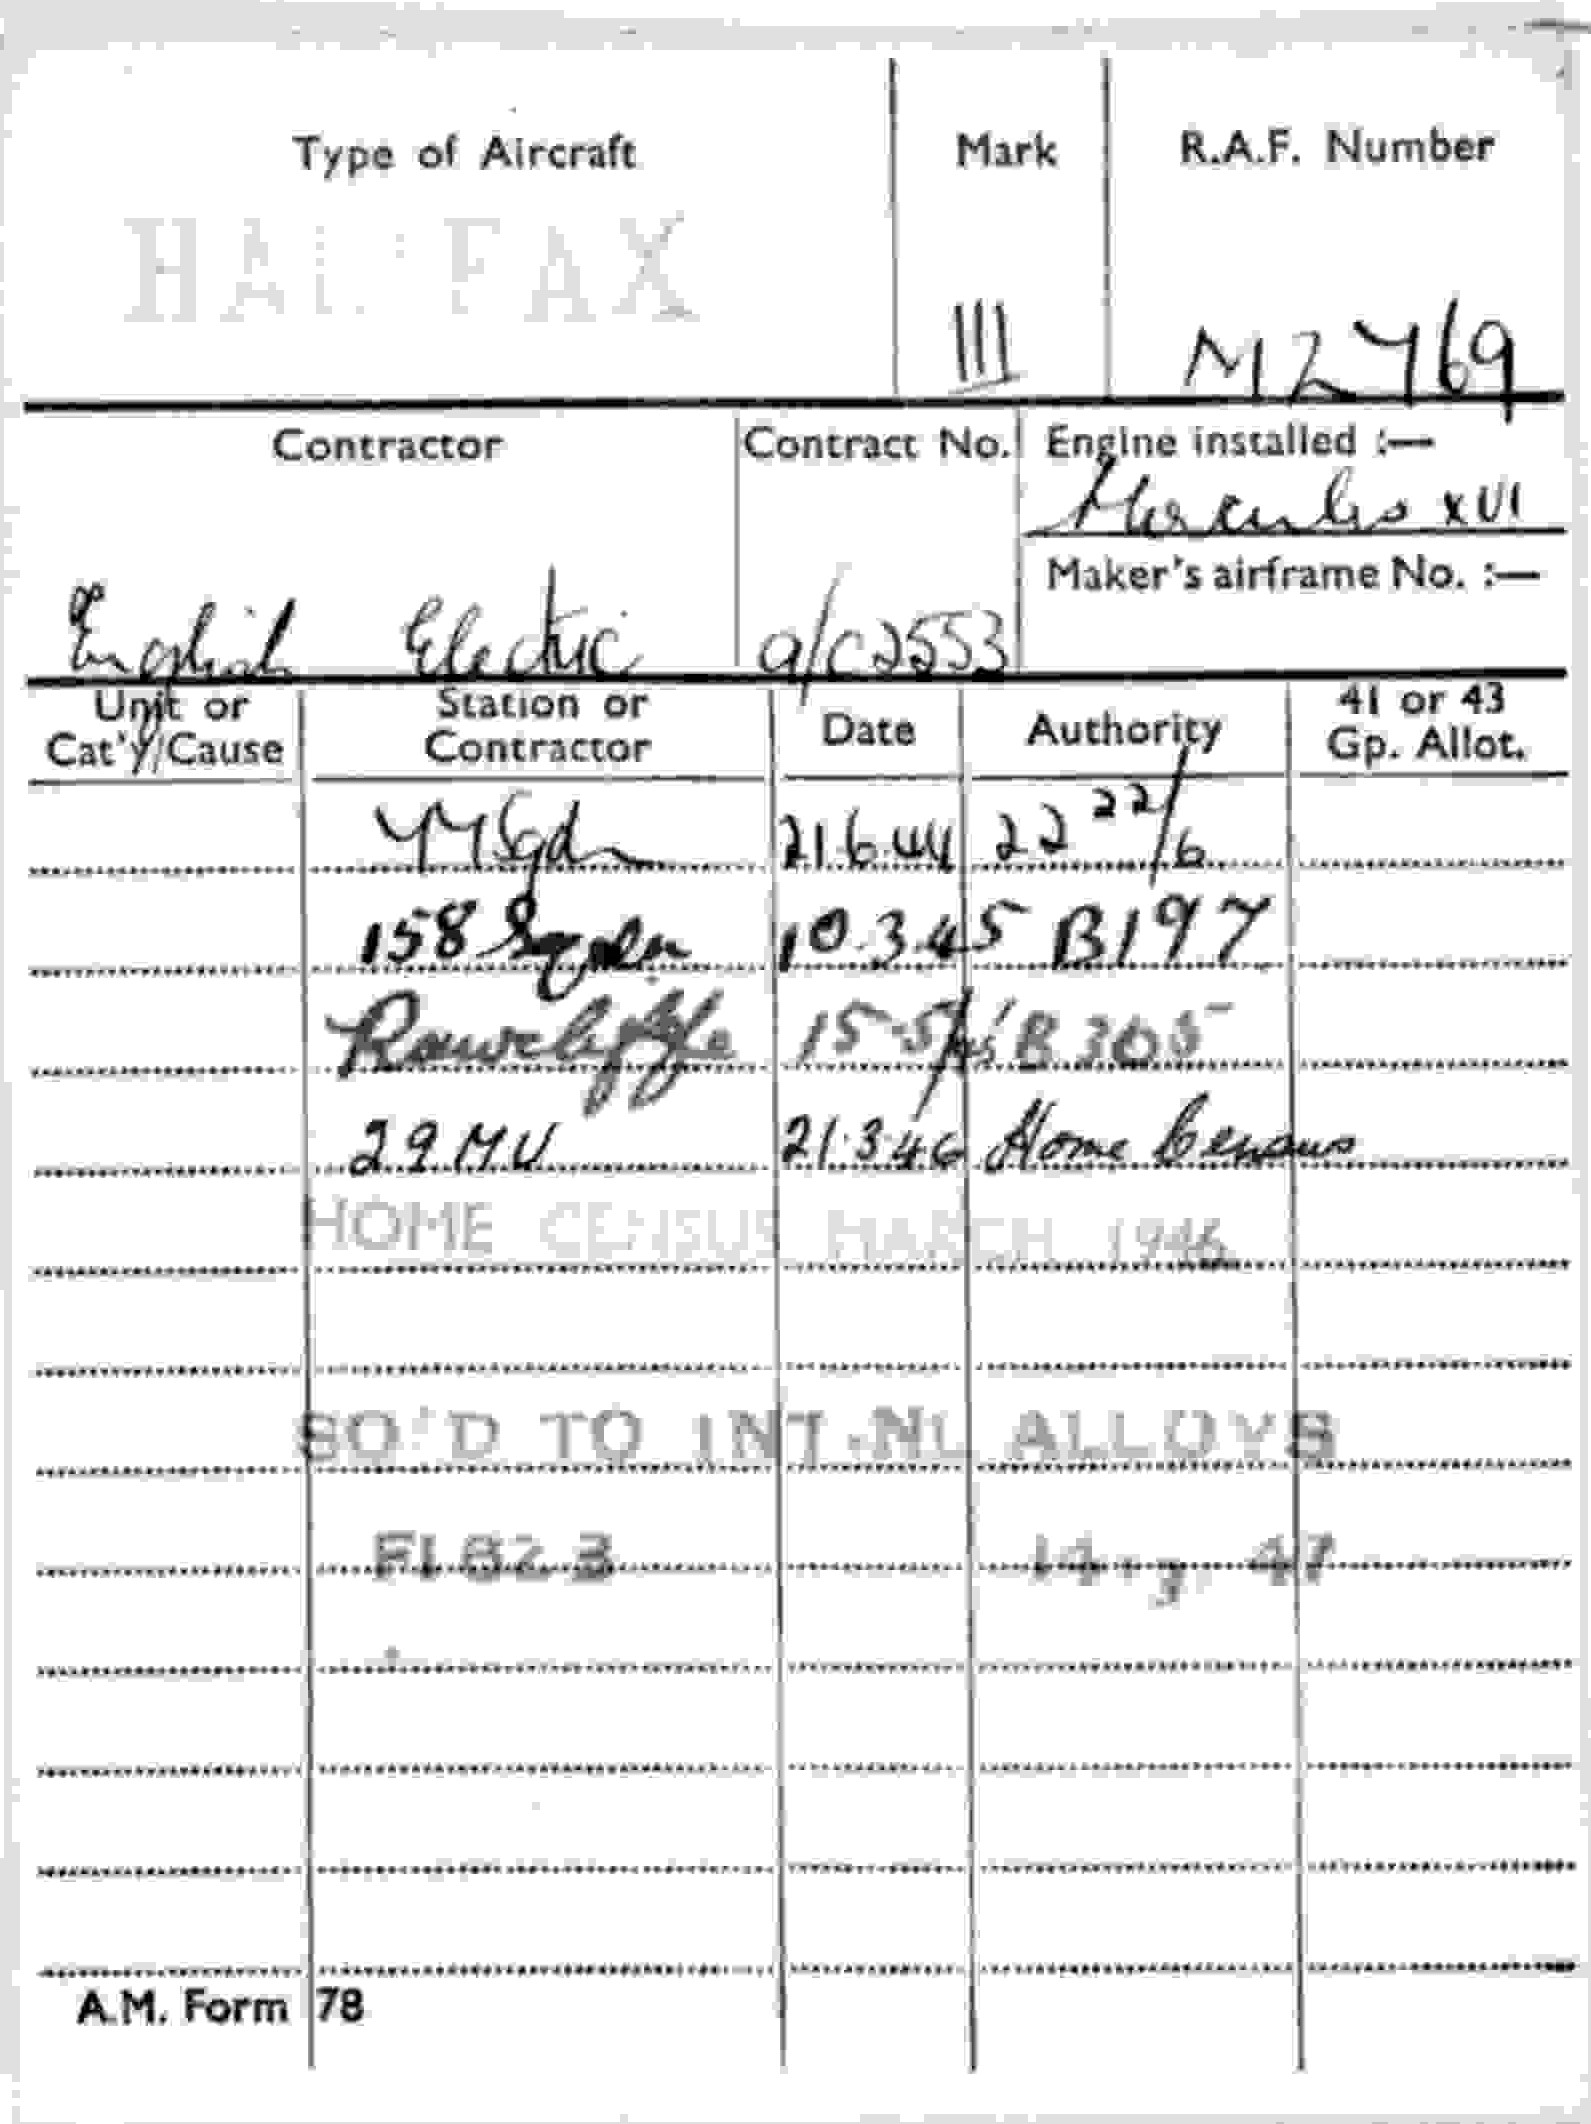 Type of Aircraft Mark R.A.F. Number
HALIFAX III MZ769
Contractor Contract No. Engine installed :—
Hercules XVI
Maker's airframe No. :—
English Electric a/c2553
Unit or Cat'y/Cause Station or Contractor Date Authority 41 or 43 Gp. Allot.
77 Sqdn 21.6.44 22 22/6
158 Sqdn 10.3.45 B197
Rawcliffe 15.5/45 B305
29 MU 21.3.46 Home Census
HOME CENSUS MARCH 1946
SO'D TO INT.NL ALLOYS
14. 47
A.M. Form 78